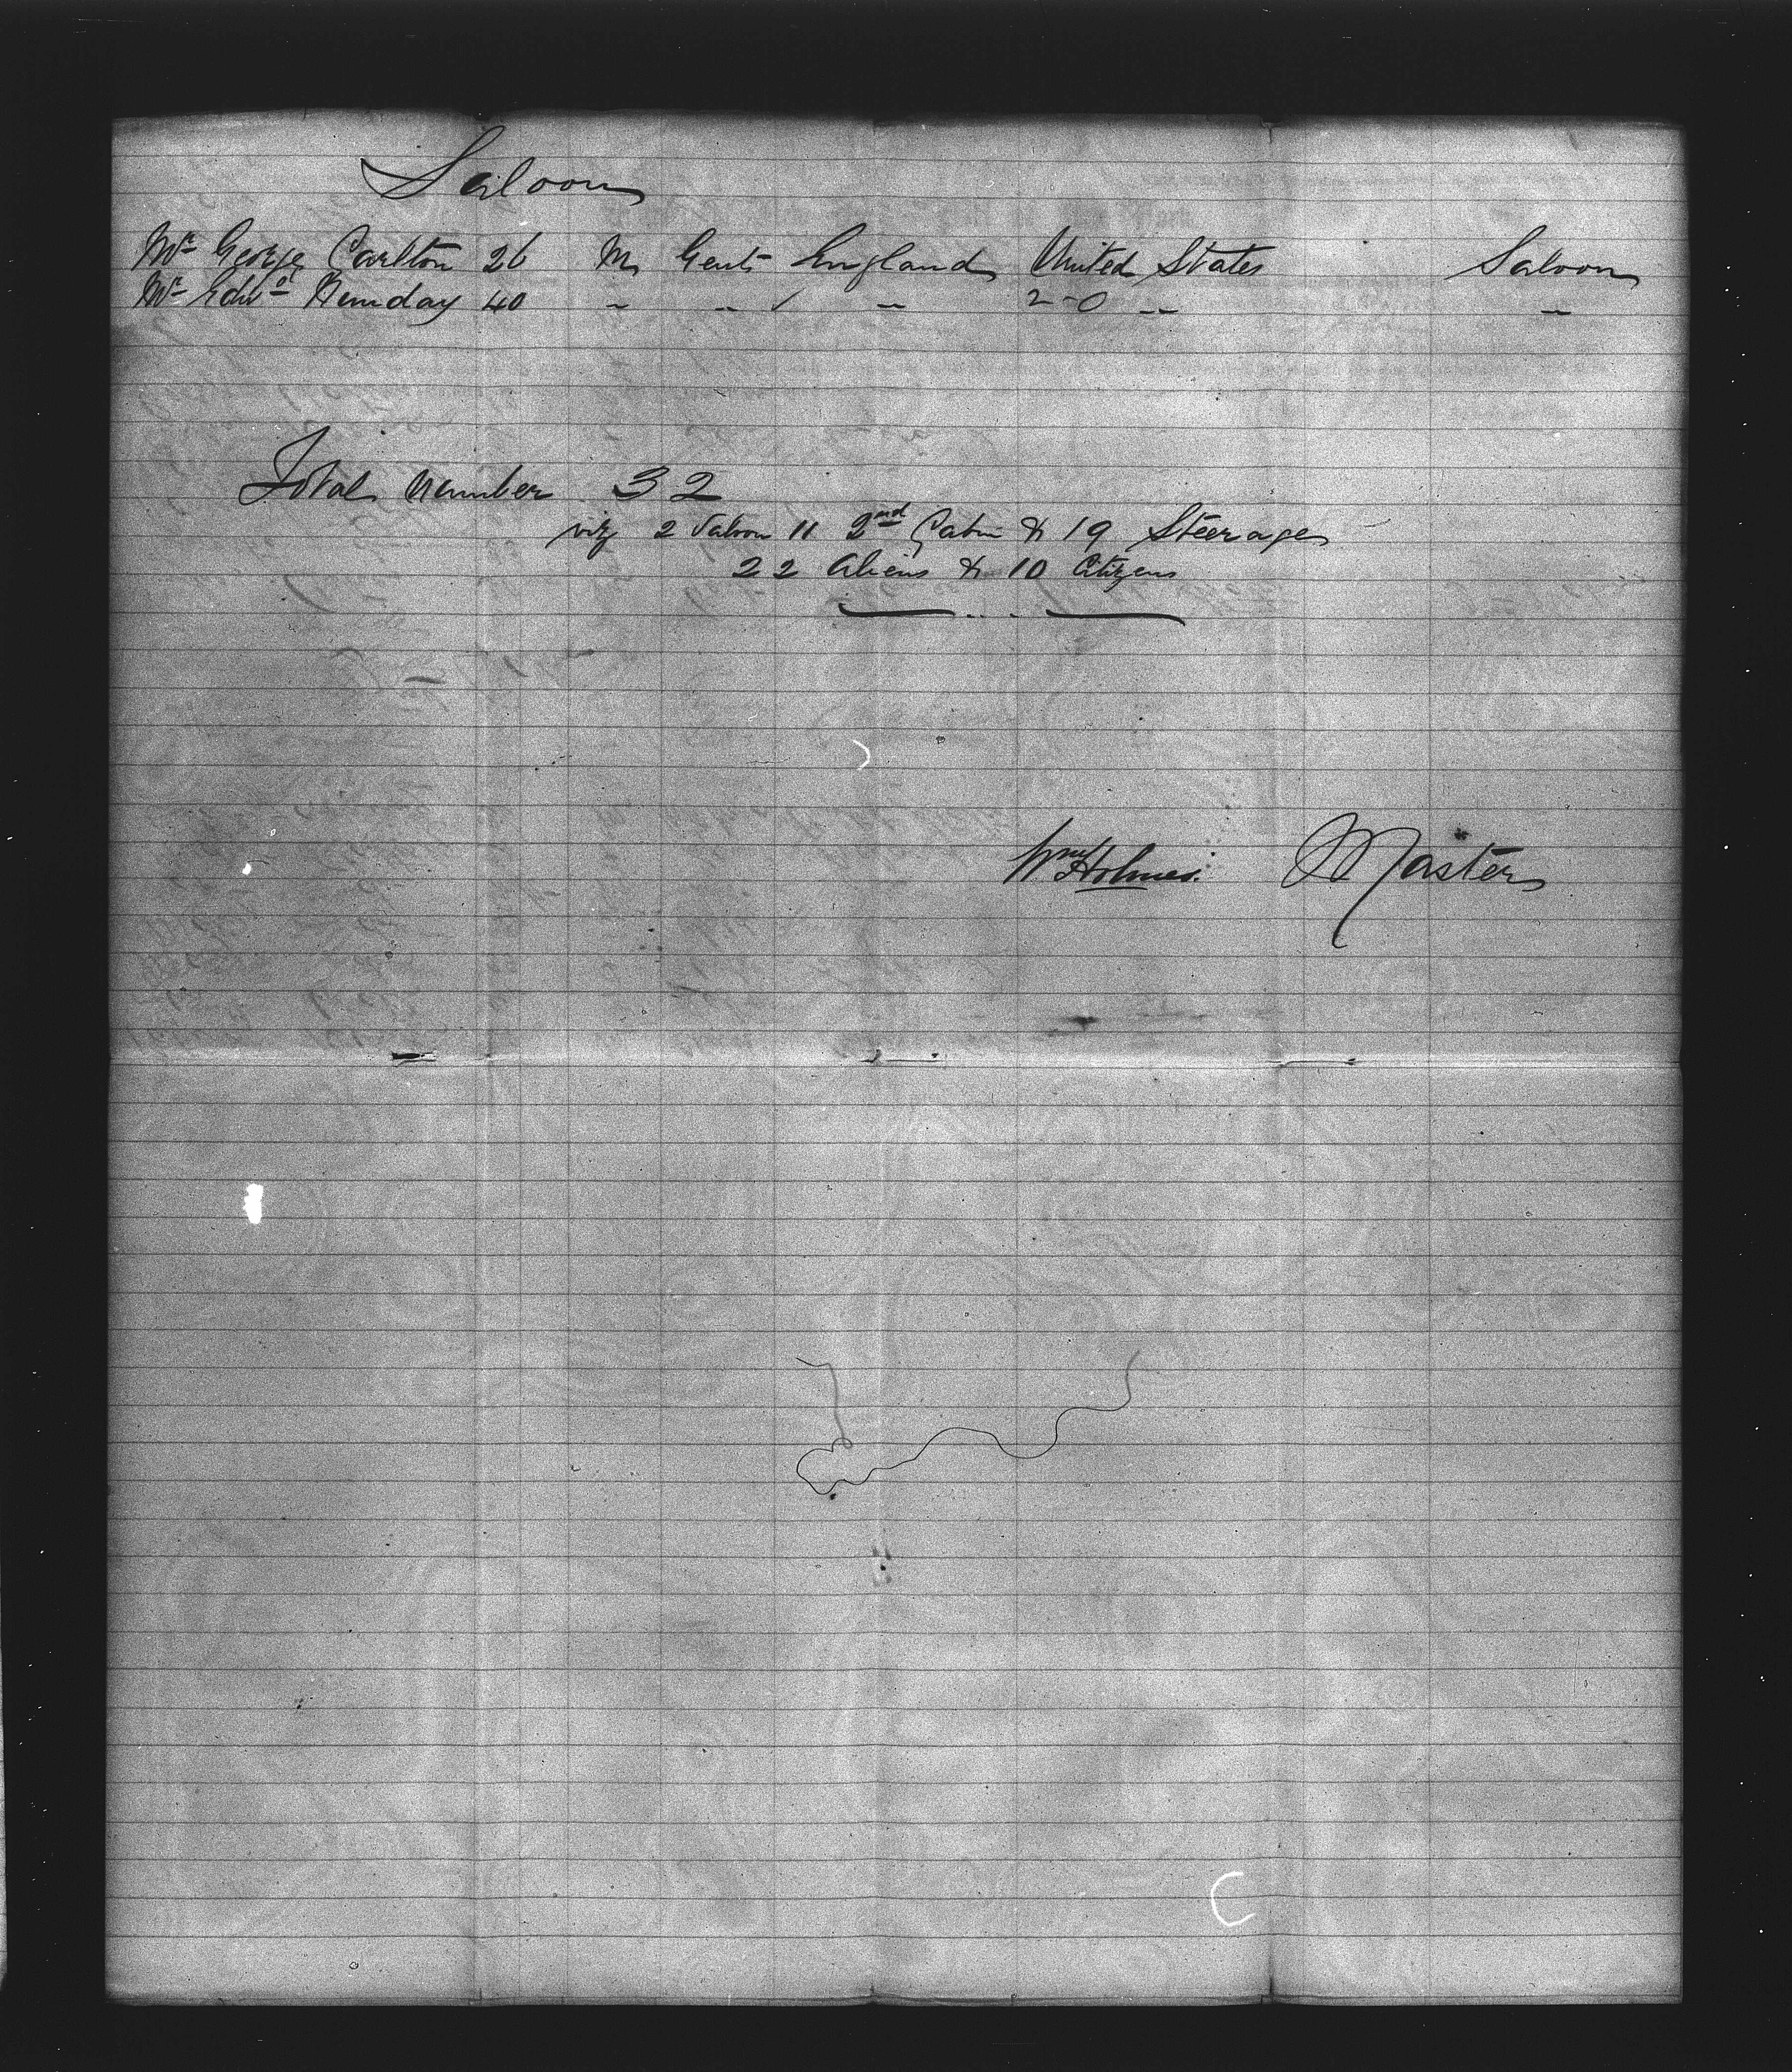 Saloon
Mr George Carlton 26 M Gent England United States Saloon
Mr Edwd 40 " " ✓ " 2-0 " "
Total number 32
viz 2 Saloon 11 2nd Cabin & 19 Steerage
22 Aliens & 10 Citizens
Wm Holmes. Master